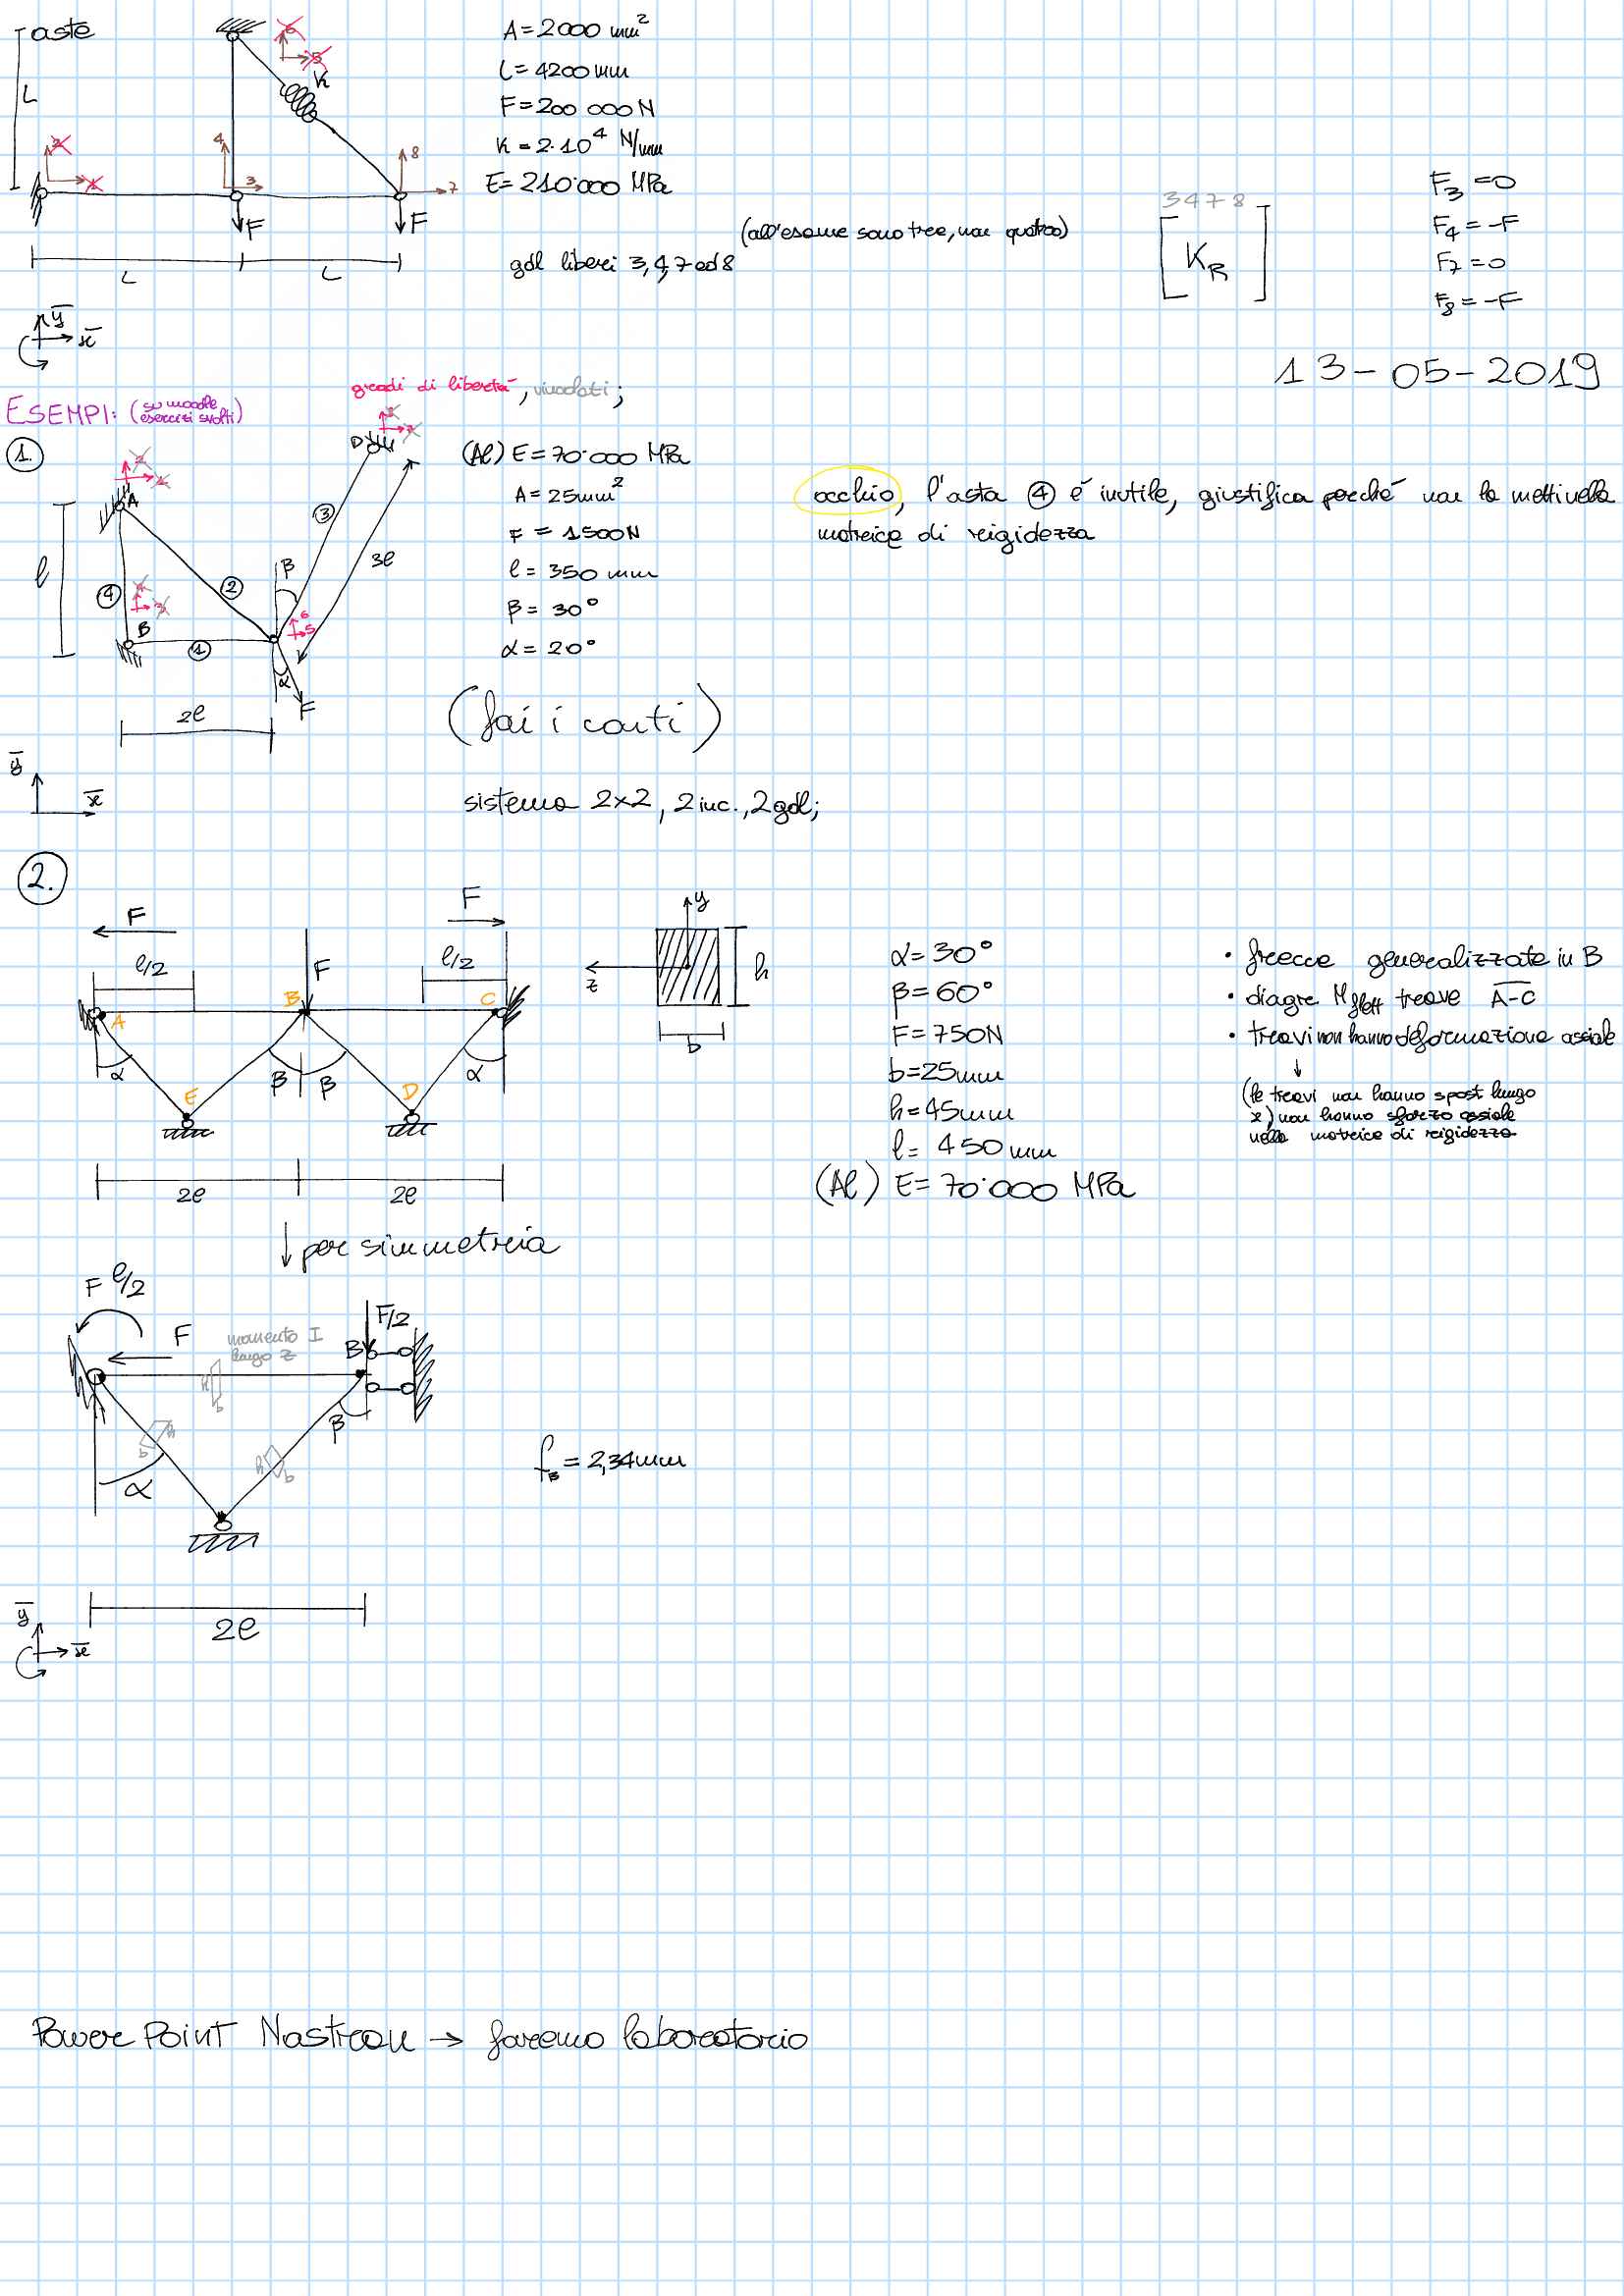 aste
A=2000 mm²
L=4200 mm
F=200 000 N
K=2·10⁴ N/mm
E=210'000 MPa
(all'esame sono tre, non quattro)
gdl liberi 3,4,7 ed 8
3 4 7 8
[K_R]
F₃=0
F₄=-F
F₇=0
F₈=-F
L
K
4
3
8
7
F
F
L
L
ȳ
x̄
13-05-2019
gradi di libertà, vincolati;
ESEMPI: (su moodle
esercizi svolti)
1.
(Al) E=70'000 MPa
A=25mm²
F=1500N
l=350 mm
β=30°
α=20°
occhio, l'asta ④ é inutile, giustifica perché non la metti nella
matrice di rigidezza
A
B
D
l
④
②
③
①
β
3l
6
5
α
F
2l
(fai i conti)
ȳ
x̄
sistema 2x2, 2 inc., 2gdl;
2.
F
F
l/2
F
l/2
A
B
C
α
β
β
α
E
D
2l
2l
y
z
h
b
α=30°
β=60°
F=750N
b=25mm
h=45mm
l=450 mm
(Al) E=70'000 MPa
• frecce generalizzate in B
• diagr M_flett trave A-C
• travi non hanno deformazione assiale
↓
(le travi non hanno spost lungo
x) non hanno sforzo assiale
nella matrice di rigidezza
↓ per simmetria
F l/2
F
momento I
lungo z
F/2
B
h
b
b
h
h
b
β
α
f_B=2,34mm
2l
ȳ
x̄
Power Point Nastran → faremo laboratorio